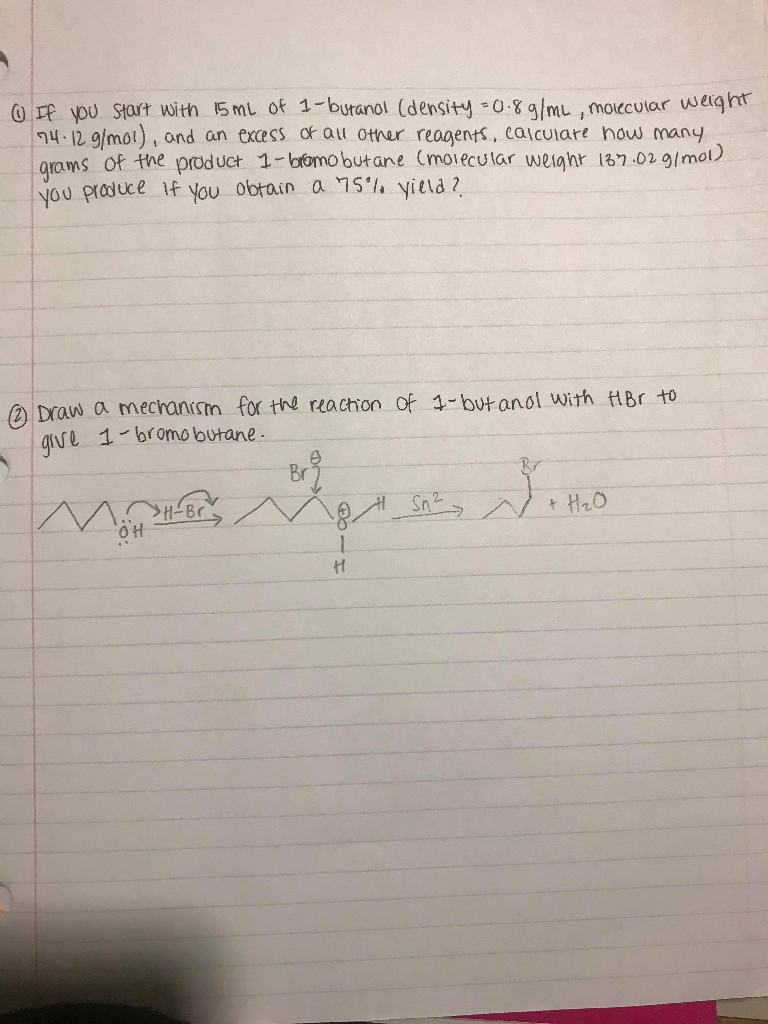 ① If you start with 15 mL of 1-butanol (density = 0.8 g/mL, molecular weight
74.12 g/mol), and an excess of all other reagents, calculate how many
grams of the product 1-bromobutane (molecular weight 137.02 g/mol)
you produce if you obtain a 75% yield?
② Draw a mechanism for the reaction of 1-butanol with HBr to
give 1-bromobutane.
Br⊖ Br
ÖH H-Br ⊕O H Sn2 + H2O
H